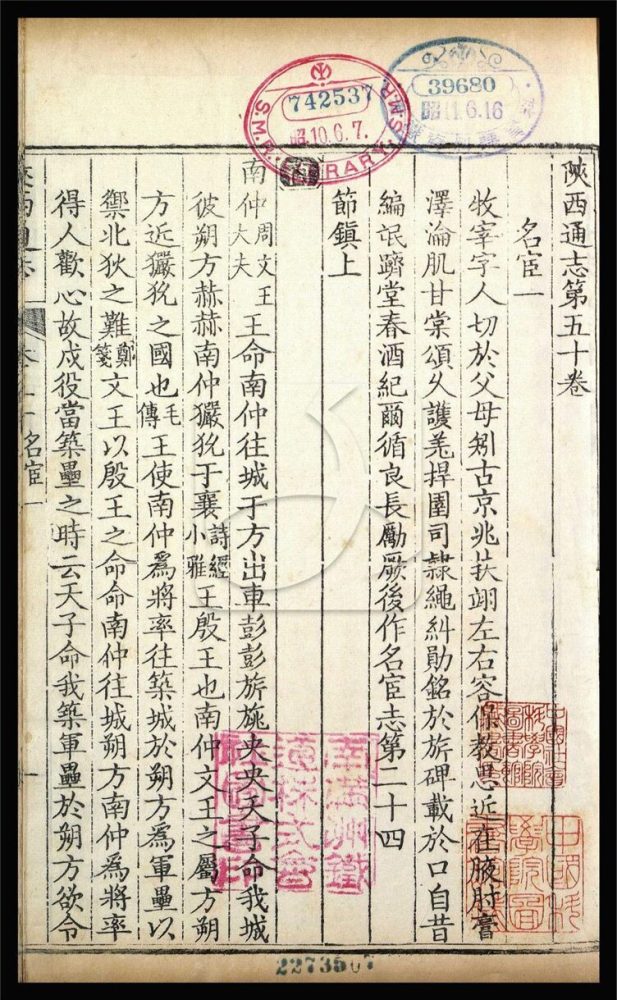 陝西通志第五十卷
名宦一
牧宰字人切於父母矧古京兆扶翊左右容保教思近在腋肘膏
澤淪肌甘棠頌久護羌捍圉司隸繩糾勛銘於旂碑載於口自昔
編氓躋堂春酒紀爾循良長勵厥後作名宦志第二十四
節鎮上
南仲周文王大夫王命南仲往城于方出車彭彭旂旐央央天子命我城
彼朔方赫赫南仲玁狁于襄詩經小雅王殷王也南仲文王之屬方朔
方近玁狁之國也毛傳王使南仲爲將率往築城於朔方爲軍壘以
禦北狄之難鄭箋文王以殷王之命命南仲往城朔方南仲爲將率
得人歡心故戍役當築壘之時云天子命我築軍壘於朔方欲令
名宦一
742537
昭10.6.7.
S.M.R.
39680
昭11.6.16
2273507